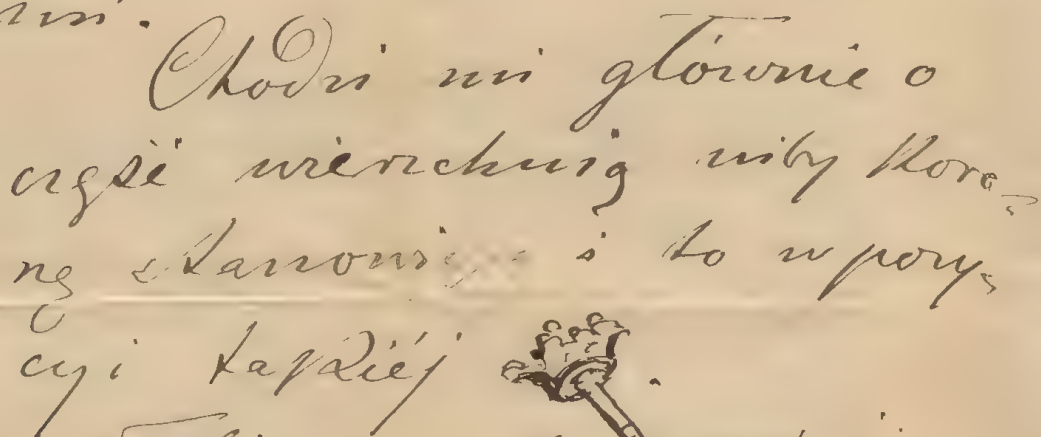 Chodzi mi głównie o
część wierzchnią niby Koro-
nę i to w pozy-
cyi takiéj .